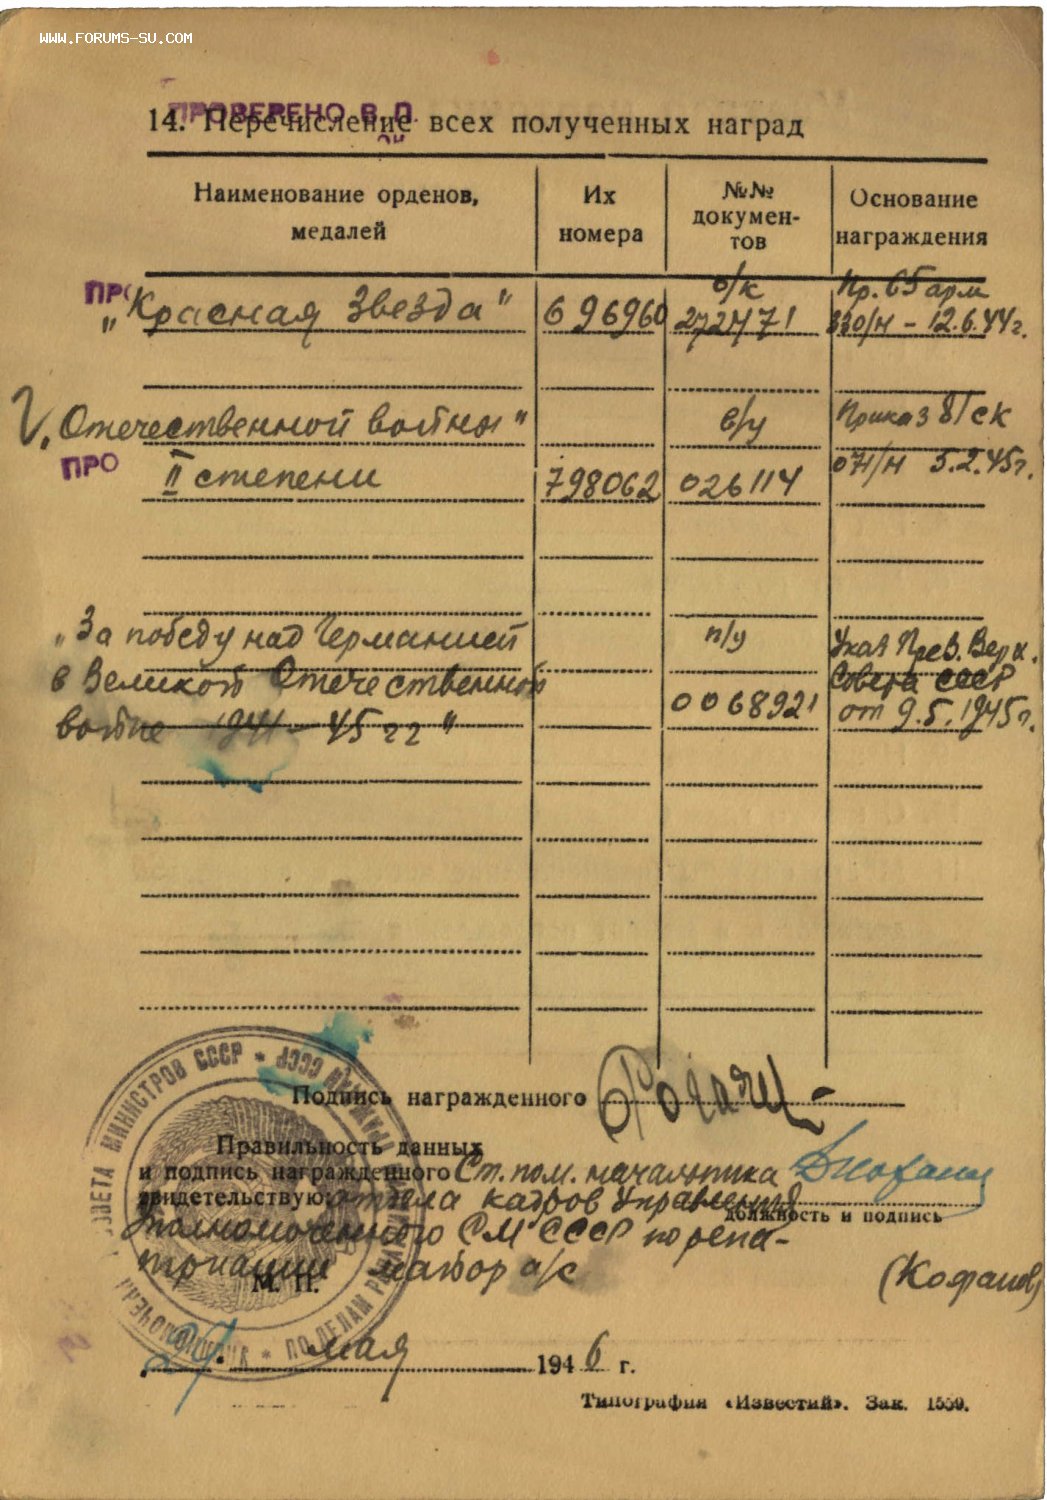 www.forums-su.com
ПРОВЕРЕНО В.П.
14. Перечисление всех полученных наград
Наименование орденов, медалей
Их номера
№№ докумен-тов
Основание награждения
ПРО
„Красная Звезда"
696960
о/к
272471
Пр. 65 арм
330/н - 12.6.44г.
„Отечественной войны"
в/у
Приказ 81 ск
ПРО
II степени
798062
026114
071/н 5.2.45г.
„За победу над Германией
п/у
Указ През. Верх.
в Великой Отечественной
Совета СССР
войне 1941-45 гг"
0068921
от 9.5.1945г.
Подпись награжденного
Правильность данных
и подпись награжденного Ст. пом. начальника
свидетельствую: отдела кадров Управления
должность и подпись
Уполномоченного СМ СССР по репа-
триации майор а/с
(Кофанов)
М. П.
СОВЕТА МИНИСТРОВ СССР * ПО ДЕЛАМ
мая 1946 г.
Типография «Известий». Зак. 1559.